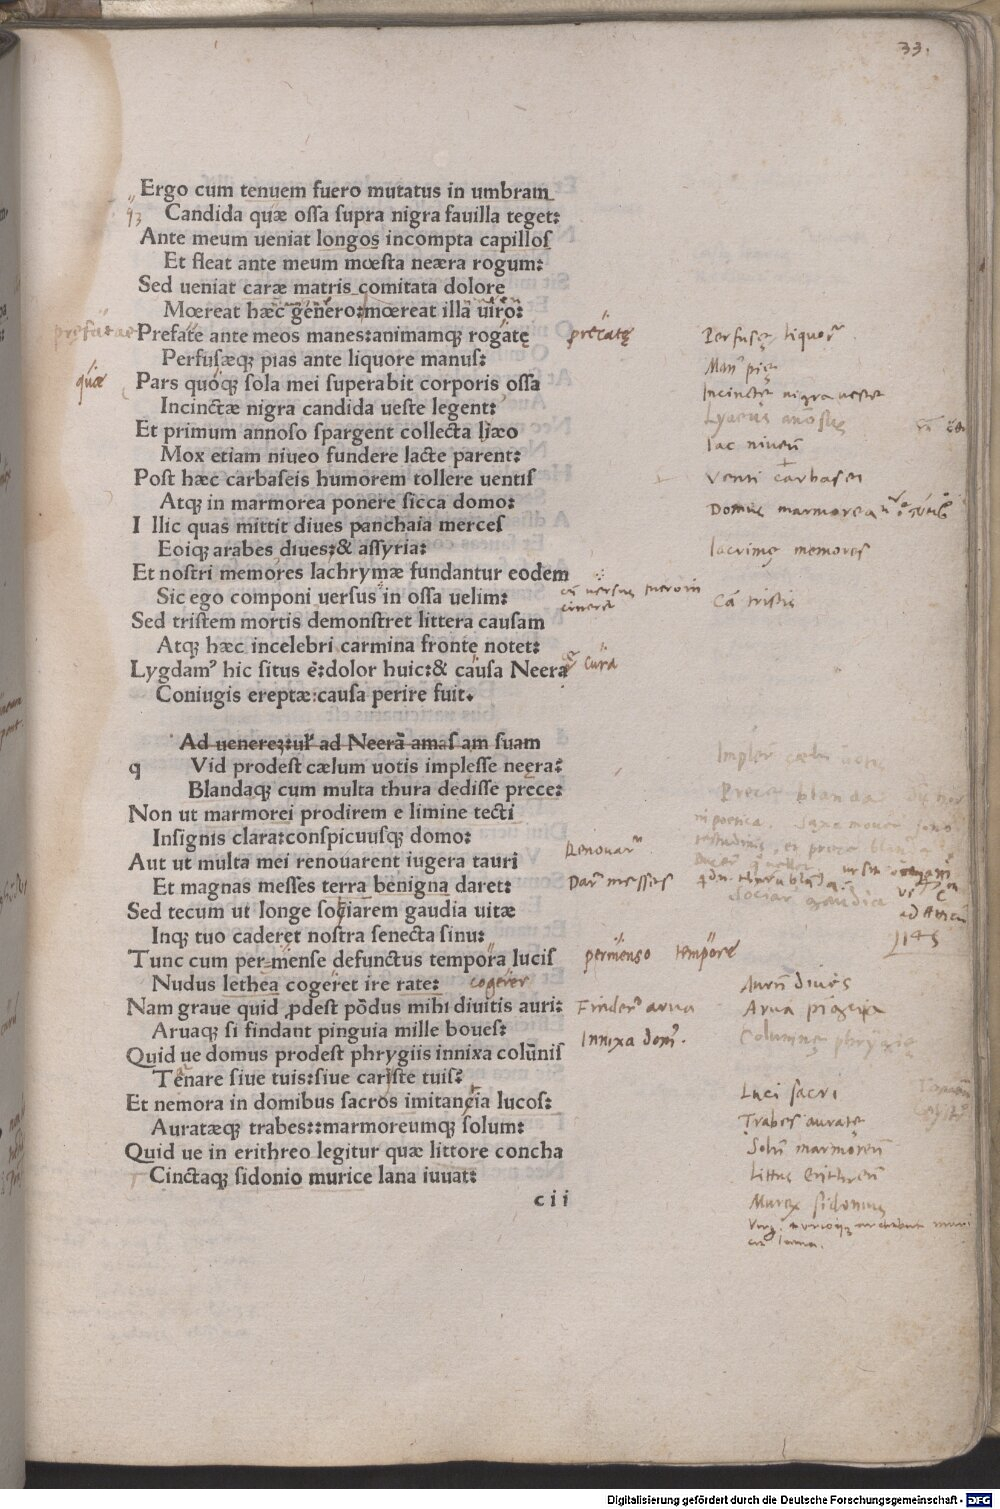 33.
Ergo cum tenuem fuero mutatus in umbram
Candida quæ ossa supra nigra fauilla teget:
Ante meum ueniat longos incompta capillos
Et fleat ante meum mœsta neæra rogum:
Sed ueniat caræ matris comitata dolore
Mœreat hæc genero:mœreat illa uiro:
Prefate ante meos manes:animamqꝫ rogatę
precatę
Perfusæqꝫ pias ante liquore manus:
quæ
Pars quoqꝫ sola mei superabit corporis ossa
Incinctæ nigra candida ueste legent:
Incincte nigra ueste
Et primum annoso spargent collecta liæo
Mox etiam niueo fundere lacte parent:
lac niueū
Post hæc carbaseis humorem tollere uentis
Venti carbasei
Atqꝫ in marmorea ponere sicca domo:
Domus marmorea
I llic quas mittit diues panchaia merces
Eoiqꝫ arabes diues:& assyria:
lacrimę memores
Et nostri memores lachrymæ fundantur eodem
Sic ego componi uersus in ossa uelim:
Sed tristem mortis demonstret littera causam
Atqꝫ hæc incelebri carmina fronte notet:
Lygdamꝰ hic situs ē:dolor huic:& causa Neeræ
cura
Coniugis ereptæ:causa perire fuit.
Ad uenereꝫ:uł ad Neerā amas am suam
q Vid prodest cælum uotis implesse neera:
Blandaqꝫ cum multa thura dedisse prece:
Non ut marmorei prodirem e limine tecti
Insignis clara:conspicuusqꝫ domo:
Aut ut multa mei renouarent iugera tauri
Et magnas messes terra benigna daret:
Dar messes
Sed tecum ut longe sociarem gaudia uitæ
Inqꝫ tuo caderet nostra senecta sinu:
Tunc cum per mense defunctus tempora lucis
permenso tempore
Nudus lethea cogeret ire rate:
cogerer
Auru diues
Nam graue quid ꝓdest põdus mihi diuitis auri:
Finder arua
Arua pinguia
Aruaqꝫ si findant pinguia mille boues:
Innixa dom.
Columnę phrygię
Quid ue domus prodest phrygiis innixa colūnis
Tenare siue tuis:siue cariste tuis:
Et nemora in domibus sacros imitancia lucos:
Luci sacri
Auratæqꝫ trabes::marmoreumqꝫ solum:
Trabes auratę
Quid ue in erithreo legitur quæ littore concha
Solū marmoreū
Cinctaqꝫ sidonio murice lana iuuat:
Littus erithreū
c i i
Murex sidonius
Digitalisierung gefördert durch die Deutsche Forschungsgemeinschaft - DFG